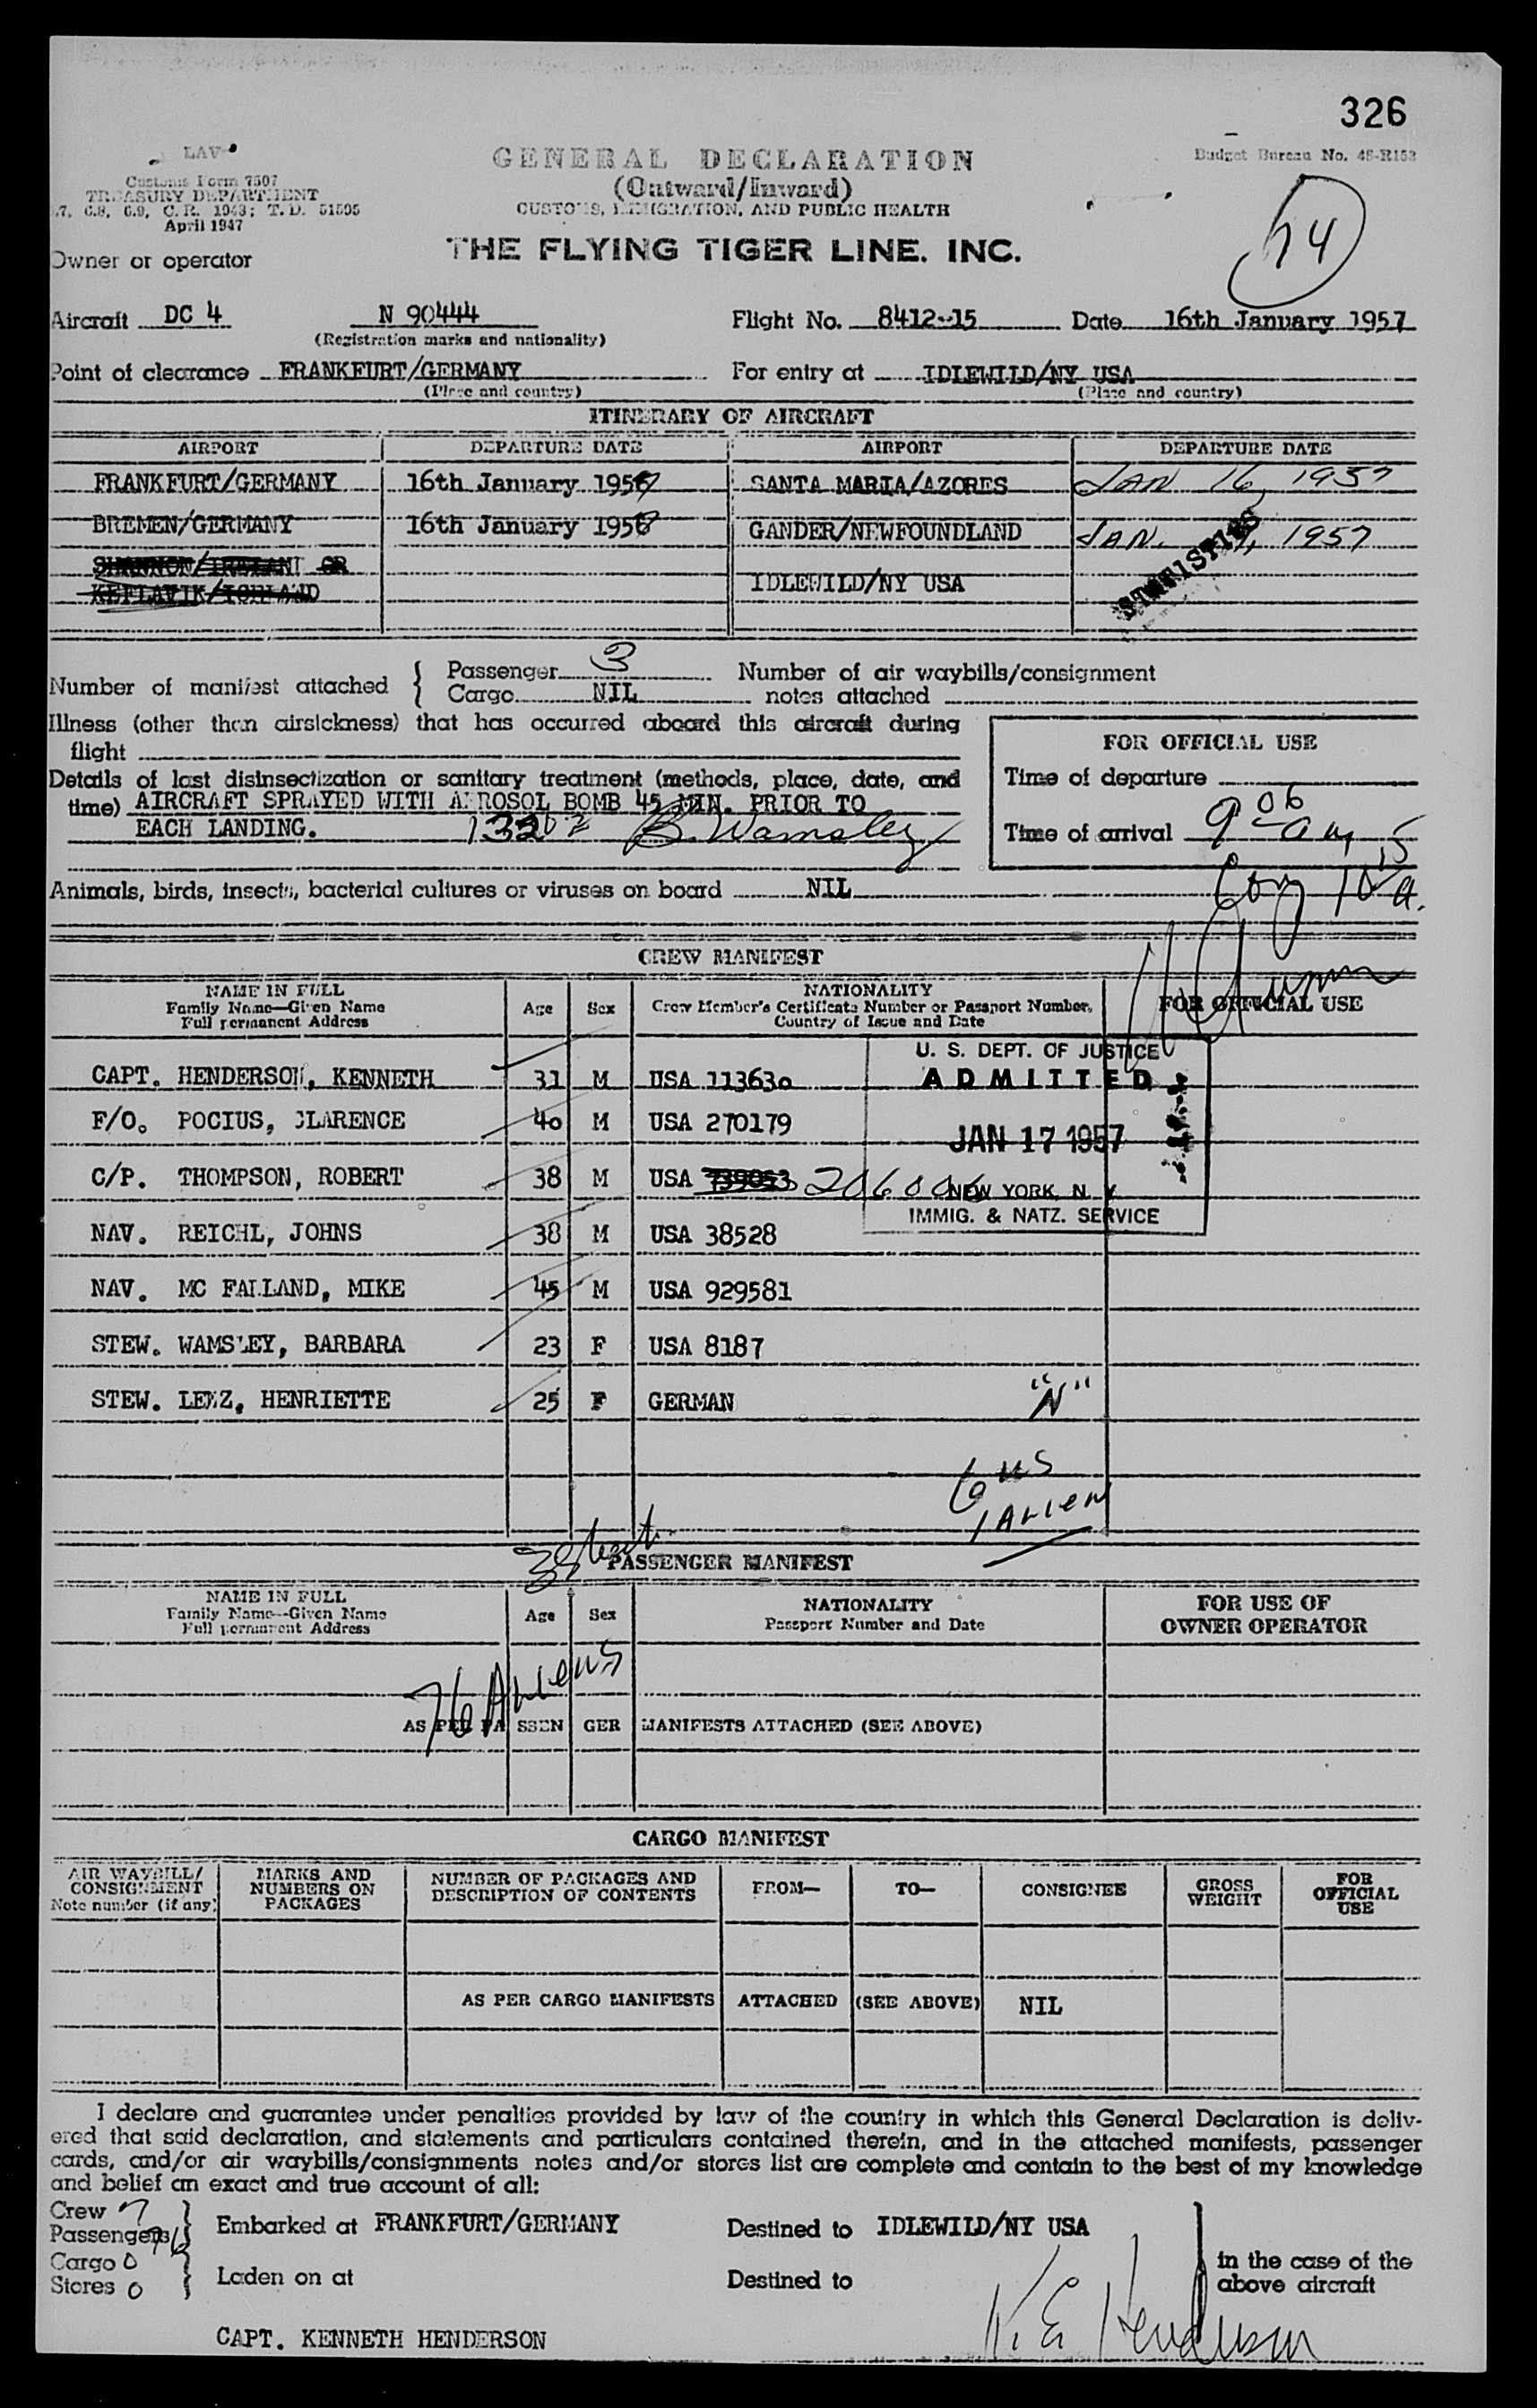 326
LAV
Customs Form 7507
TREASURY DEPARTMENT
.7, 6.8, 6.9, C.R. 1943; T.D. 51505
April 1947
GENERAL DECLARATION
(Outward/Inward)
CUSTOMS, IMMIGRATION, AND PUBLIC HEALTH
Budget Bureau No. 48-R153
THE FLYING TIGER LINE. INC.
Owner or operator
74
Aircraft DC 4 N 90444 Flight No. 8412-15 Date 16th January 1957
(Registration marks and nationality)
Point of clearance FRANKFURT/GERMANY For entry at IDLEWILD/NY USA
(Place and country) (Place and country)
ITINERARY OF AIRCRAFT
AIRPORT DEPARTURE DATE AIRPORT DEPARTURE DATE
FRANKFURT/GERMANY 16th January 1957 SANTA MARIA/AZORES JAN 16, 1957
BREMEN/GERMANY 16th January 1957 GANDER/NEWFOUNDLAND JAN. 1957
SHANNON/IRELAND OR
KEFLAVIK/ICELAND IDLEWILD/NY USA
STATISTICS
Number of manifest attached { Passenger 3 Number of air waybills/consignment
{ Cargo NIL notes attached
Illness (other than airsickness) that has occurred aboard this aircraft during
flight
Details of last disinsectization or sanitary treatment (methods, place, date, and
time) AIRCRAFT SPRAYED WITH AEROSOL BOMB 45 MIN. PRIOR TO
EACH LANDING. 1320z B. Wamsley
FOR OFFICIAL USE
Time of departure
Time of arrival 9 06 am
Animals, birds, insects, bacterial cultures or viruses on board NIL
CREW MANIFEST
NAME IN FULL
Family Name—Given Name
Full permanent Address
Age Sex
NATIONALITY
Crew Member's Certificate Number or Passport Number,
Country of Issue and Date
FOR OFFICIAL USE
U. S. DEPT. OF JUSTICE
ADMITTED
JAN 17 1957
NEW YORK, N. Y.
IMMIG. & NATZ. SERVICE
CAPT. HENDERSON, KENNETH 31 M USA 113630
F/O. POCIUS, CLARENCE 40 M USA 270179
C/P. THOMPSON, ROBERT 38 M USA 739053 206006
NAV. REICHL, JOHNS 38 M USA 38528
NAV. MC FALLAND, MIKE 45 M USA 929581
STEW. WAMSLEY, BARBARA 23 F USA 8187
STEW. LENZ, HENRIETTE 25 F GERMAN "N"
6 US
1 ALIEN
PASSENGER MANIFEST
NAME IN FULL
Family Name—Given Name
Full permanent Address
Age Sex
NATIONALITY
Passport Number and Date
FOR USE OF
OWNER OPERATOR
76 Aliens
AS PER PASSENGER MANIFESTS ATTACHED (SEE ABOVE)
CARGO MANIFEST
AIR WAYBILL/
CONSIGNMENT
Note number (if any)
MARKS AND
NUMBERS ON
PACKAGES
NUMBER OF PACKAGES AND
DESCRIPTION OF CONTENTS
FROM—
TO—
CONSIGNEE
GROSS
WEIGHT
FOR
OFFICIAL
USE
AS PER CARGO MANIFESTS ATTACHED (SEE ABOVE) NIL
I declare and guarantee under penalties provided by law of the country in which this General Declaration is deliv-
ered that said declaration, and statements and particulars contained therein, and in the attached manifests, passenger
cards, and/or air waybills/consignments notes and/or stores list are complete and contain to the best of my knowledge
and belief an exact and true account of all:
Crew 7
Passengers 76 Embarked at FRANKFURT/GERMANY Destined to IDLEWILD/NY USA
Cargo 0
Stores 0 Laden on at Destined to
in the case of the
above aircraft
CAPT. KENNETH HENDERSON K. E. Henderson